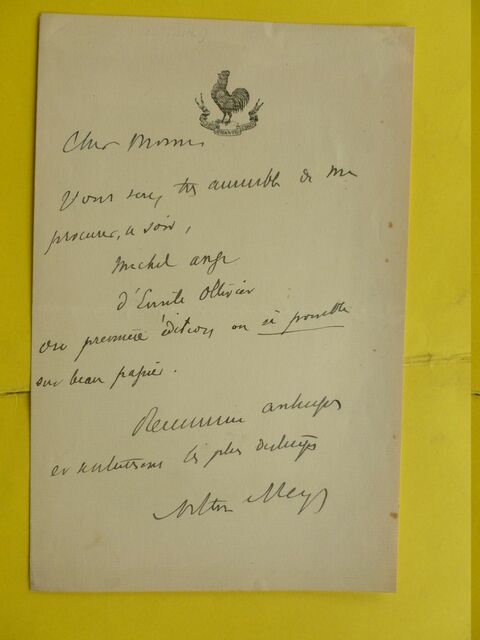 CHANTE
Cher
Vous serez très aimable de me
procurer, ce soir,
Michel ange
d'Emile Ollivier
en première édition ou si possible
sur beau papier.
anticipés
et salutations les plus distingués
Arthur Meyer